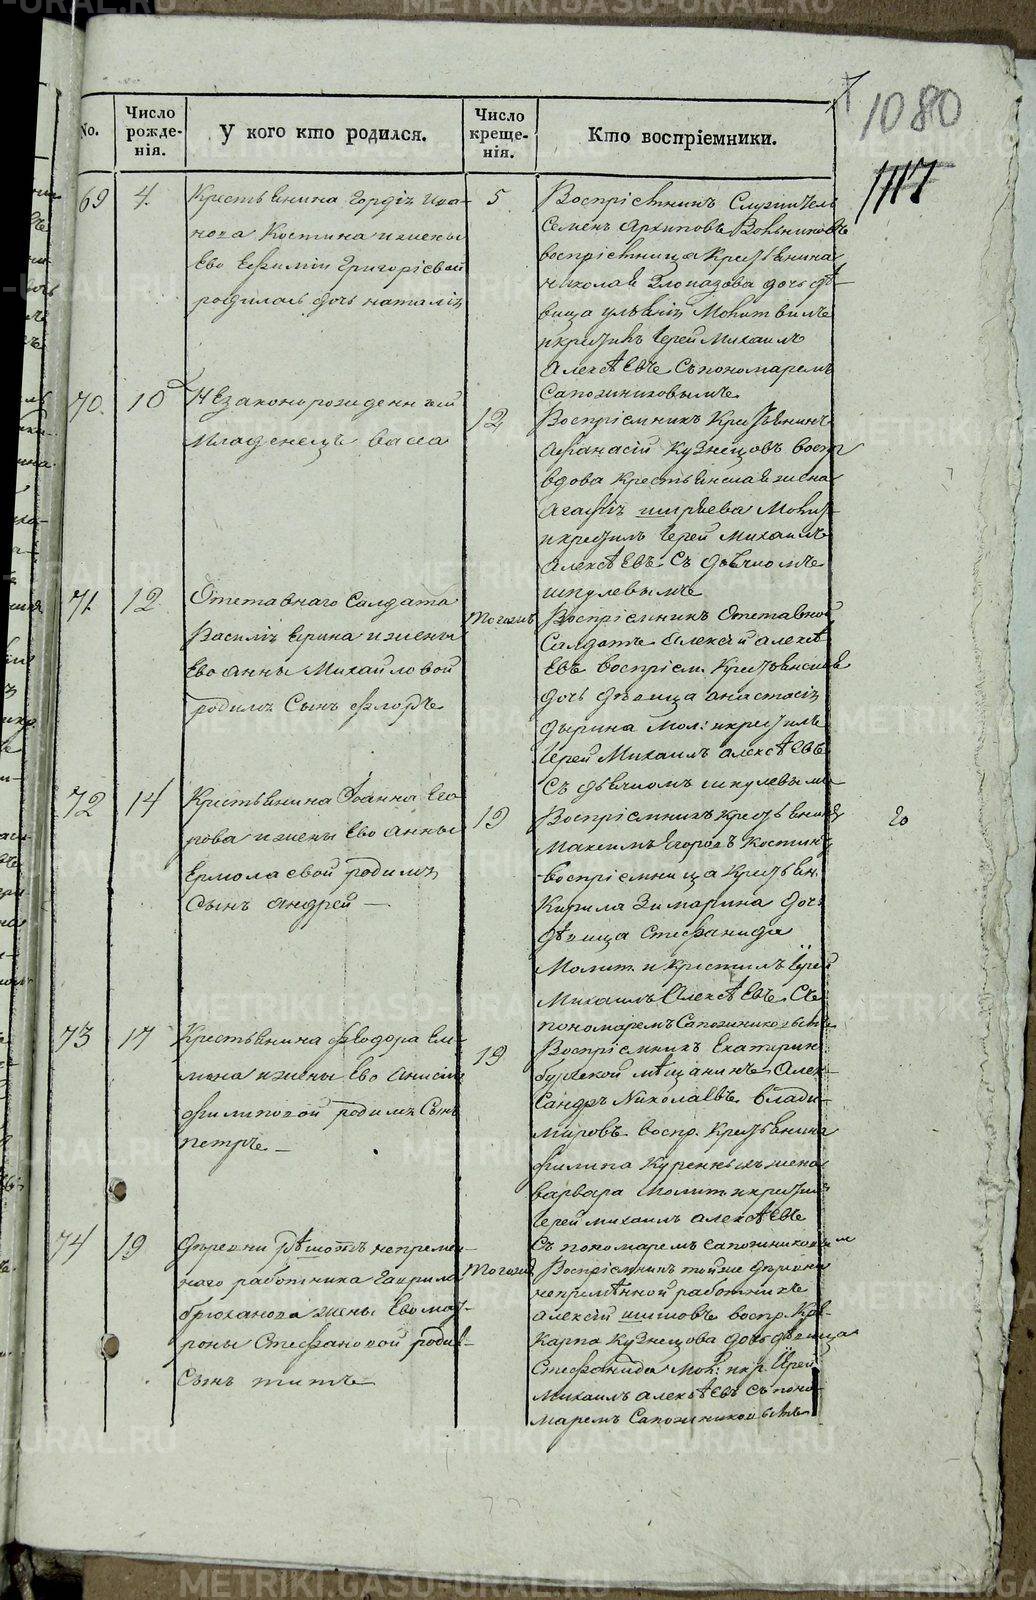 1080
1117
No.
Число рожденія.
У кого кто родился.
Число крещенія.
Кто воспріемники.
69
4.
Крестьянина Гордія Ива-
нова Костина и жены
Ево Ефиміи Григоріевой
родилась дочь наталія
5
Воспріемникъ Служитель
Семенъ Архиповъ
воспріемница Крестьянина
николая дочь дѣ-
вица Молитвилъ
и крестилъ Іерей Михаилъ
Алексѣевъ Съ пономаремъ
Сапожниковымъ
70.
10
Незаконорожденный
младенецъ васса
12
Воспріемникъ Крестьянинъ
Афанасій Кузнецовъ восп
вдова Крестьянская жена
Агафія Молит
и крестилъ Іерей Михаилъ
Алексѣевъ Съ дьячкомъ
шкулевымъ
71.
12.
Отставнаго Салдата
Василія Ерина и жены
Ево анны Михайловой
родился Сынъ флоръ
Того жъ
Воспріемникъ Отставной
Салдатъ Алексѣй алексѣ
Евъ воспріем. Крестьянская
дочь дѣвица анастасія
дырина Мол: и крестилъ
Іерей Михаилъ алексѣевъ
Съ дьячкомъ шкулевымъ
72
14
Крестьянина Іоанна Его
рова и жены Ево Анны
Ермолаевой родился
Сынъ Андрей —
19
Воспріемникъ Крестьянинъ
Максимъ Егоровъ Костинъ
Воспріемница Крестьян.
Кирила Зимарина дочь
дѣвица Стефанида
Молит. и Крестилъ Іерей
Михаилъ Алексѣевъ Съ
пономаремъ Сапожниковымъ
73
17
Крестьянина Феодора
и жены Ево Анисіи
Филиповой родился Сынъ
петръ —
19
Воспріемникъ Екатерин
бургской мѣщанинъ Алек-
Сандръ Николаевъ Влади-
мировъ воспр. Крестьянина
филипа Куренныхъ жена
варвара молит. и крестилъ
Іерей михаилъ алексѣевъ
Съ пономаремъ сапожниковым
74
19
Деревни Рѣшотъ непремен-
наго работника Гаврила
брюханова жены Ево мат-
роны Стефановой родил-
Сынъ титъ
Того жъ
Воспріемникъ тойже деревни
непремѣнной работникъ
алексѣй шиповъ воспр. Кре-
Карпа Кузнецова дочь дѣвица
Стефанида Мол: и кр. Іерей
Михаилъ алексѣевъ съ поно-
маремъ Сапожниковымъ
METRIKI.GASU-URAL.RU